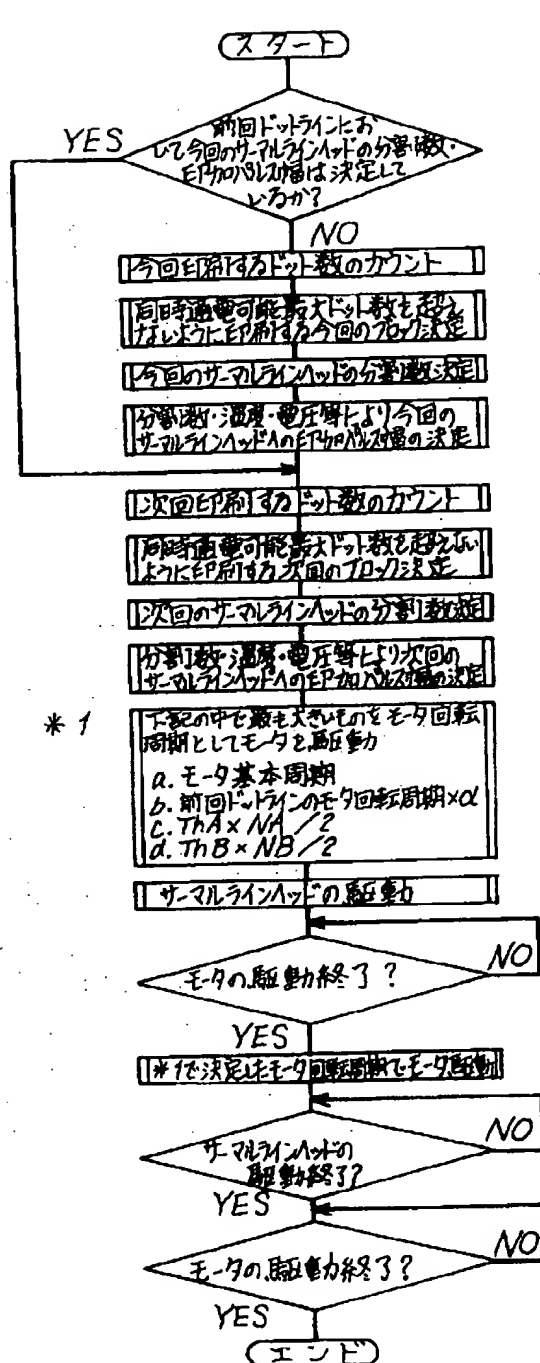 スタート
前回ドットラインにお
いて今回のサーマルラインヘッドの分割数・
印加パルス幅は決定して
いるか?
YES
NO
今回印刷するドット数のカウント
同時通電可能最大ドット数を超え
ないように印刷する今回のブロック決定
今回のサーマルラインヘッドの分割数決定
分割数・温度・電圧等により今回の
サーマルラインヘッドへの印加パルス幅の決定
次回印刷するドット数のカウント
同時通電可能最大ドット数を超えない
ように印刷する次回のブロック決定
次回のサーマルラインヘッドの分割数決定
分割数・温度・電圧等により次回の
サーマルラインヘッドへの印加パルス幅の決定
*1
下記の中で最も大きいものをモータ回転
周期としてモータを駆動
a. モータ基本周期
b. 前回ドットラインのモータ回転周期×α
c. ThA×NA/2
d. ThB×NB/2
サーマルラインヘッドの駆動
モータの駆動終了?
NO
YES
*1で決定したモータ回転周期でモータ駆動
サーマルラインヘッドの
駆動終了?
NO
YES
モータの駆動終了?
NO
YES
エンド